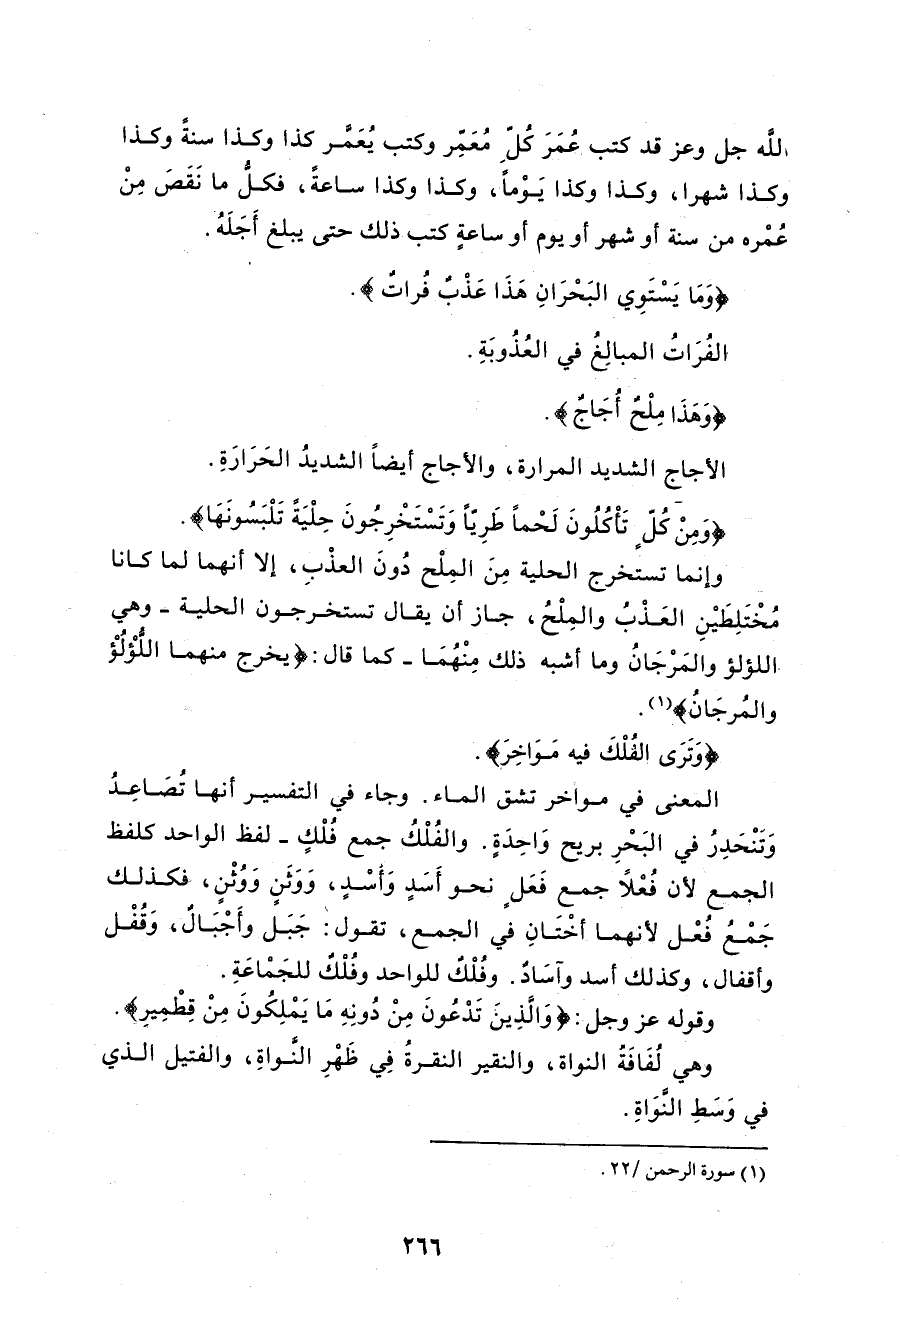 الله جل وعز قد كتب عُمَرَ كُلِّ مُعَمّرٍ وكتب يُعَمَّر كذا وكذا سنةً وكذا
وكذا شهرا، وكذا وكذا يَوْماً، وكذا وكذا ساعةً، فكلُّ ما نَقَصَ مِنْ
عُمْره من سنة أو شهر أو يوم أو ساعةٍ كتب ذلك حتى يبلغ أَجَلَهُ.
﴿وَمَا يَسْتَوِي البَحْرَانِ هَذَا عَذْبٌ فُراتٌ﴾.
الفُرَاتُ المبالِغُ في العُذُوبَةِ.
﴿وَهَذَا مِلْحٌ أُجَاجٌ﴾.
الأجاج الشديد المرارة، والأجاج أيضاً الشديدُ الحَرَارَةِ.
﴿وَمِنْ كُلٍّ تَأْكُلُونَ لَحْماً طَرِيًّا وَتَسْتَخْرِجُونَ حِلْيَةً تَلْبَسُونَهَا﴾.
وإنما تستخرج الحلية مِنَ المِلْحِ دُونَ العذْبِ، إلا أنهما لما كانا
مُخْتَلِطَيْنِ العَذْبُ والمِلْحُ، جاز أن يقال تستخرجون الحلية ـ وهي
اللؤلؤ والمَرْجَانُ وما أشبه ذلك مِنْهُمَا ـ كما قال: ﴿يخرج منهما اللُّؤْلُؤُ
والمُرجَانُ﴾(١).
﴿وَتَرَى الفُلْكَ فيه مَوَاخِرَ﴾.
المعنى في مواخر تشق الماء. وجاء في التفسير أنها تُصَاعِدُ
وَتَنْحَدِرُ في البَحْرِ بريحٍ وَاحِدَةٍ. والفُلْكُ جمع فُلْكٍ ـ لفظ الواحد كلفظ
الجمع لأن فُعْلاً جمع فَعَلٍ نحو أَسَدٍ وَأُسْدٍ، وَوَثَنٍ وَوُثْنٍ، فكذلك
جَمْعُ فُعْل لأنهما أخْتَانِ في الجمع، تقول: جَبَل وأَجْبَالٌ، وَقُفْل
وأقفال، وكذلك أسد وآسَادٌ. وفُلْكٌ للواحد وفُلْكٌ للجَمْاعَةِ.
وقوله عز وجل: ﴿وَالَّذِينَ تَدْعُونَ مِنْ دُونِهِ مَا يَمْلِكُونَ مِنْ قِطْمِيرٍ﴾.
وهي لُفَافَةُ النواة، والنقير النقرةُ فِي ظَهْرِ النَّواةِ، والفتيل الذي
في وَسَطِ النَّوَاةِ.
(١) سورة الرحمن /٢٢.
٢٦٦